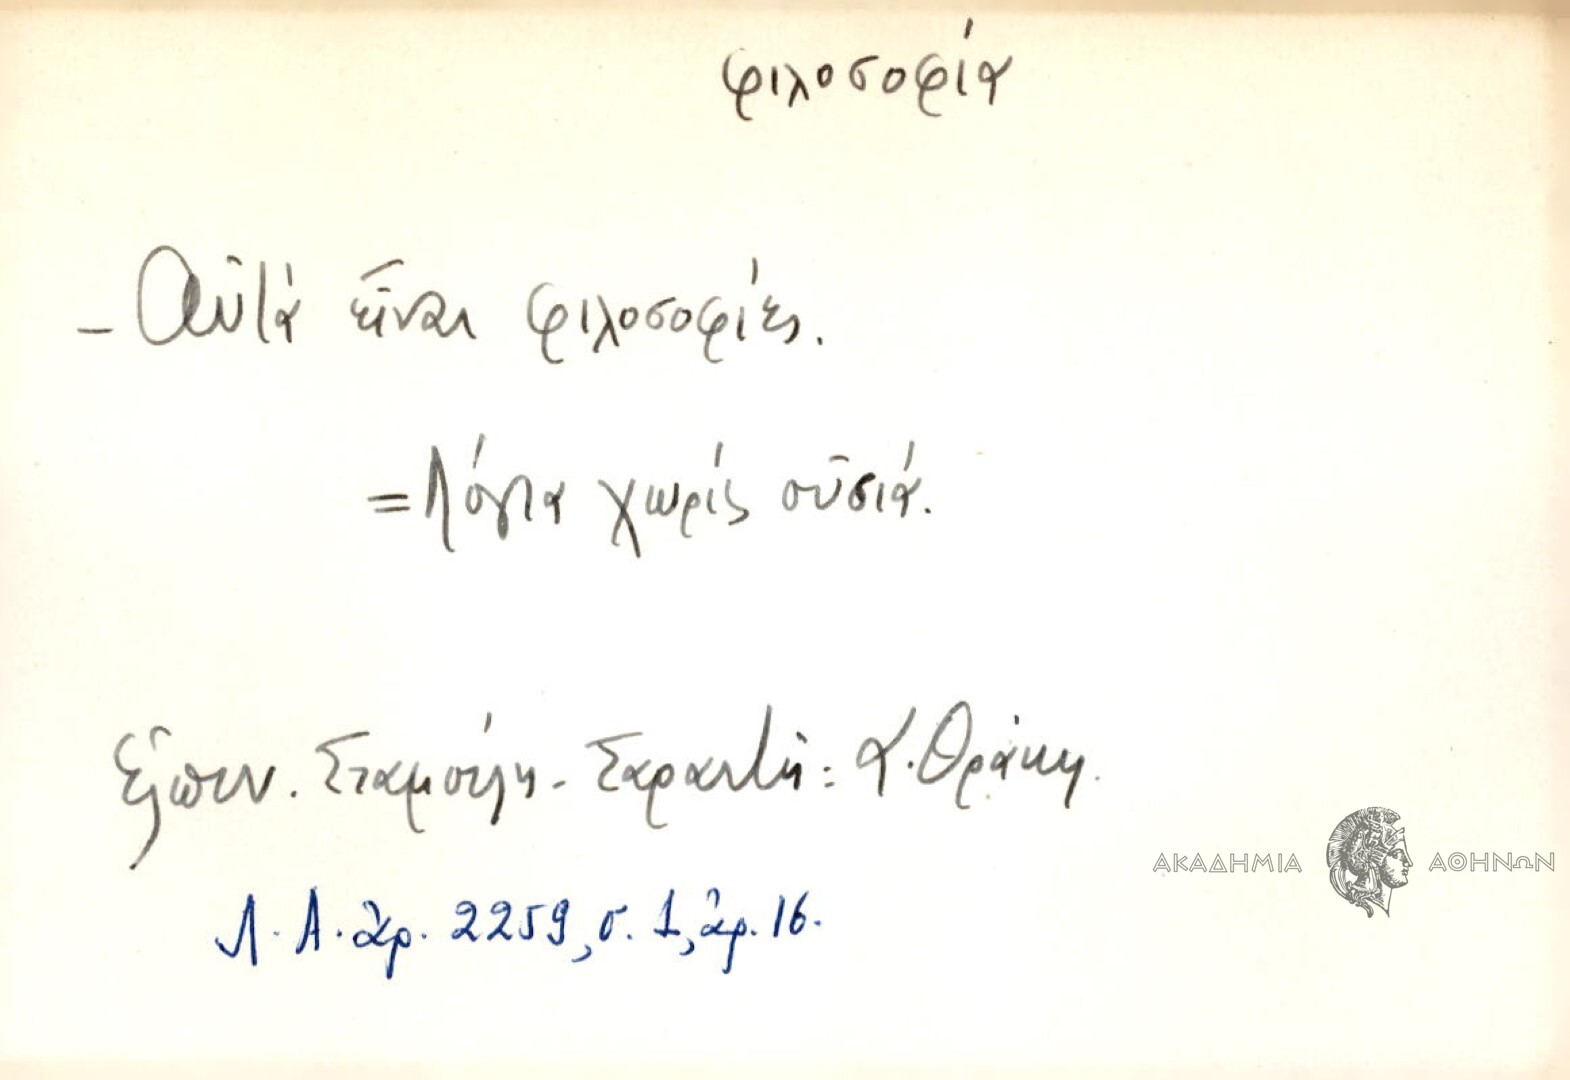 φιλοσοφία
- Αὐτά εἶναι φιλοσοφίες.
= Λόγια χωρίς οὐσιά.
Ἐλπιν. Σταμούλη - Σαραντῆ: Α. Θράκη.
Λ. Α. ἀρ. 2259, σ. 1, ἀρ. 16.
ΑΚΑΔΗΜΙΑ ΑΘΗΝΩΝ